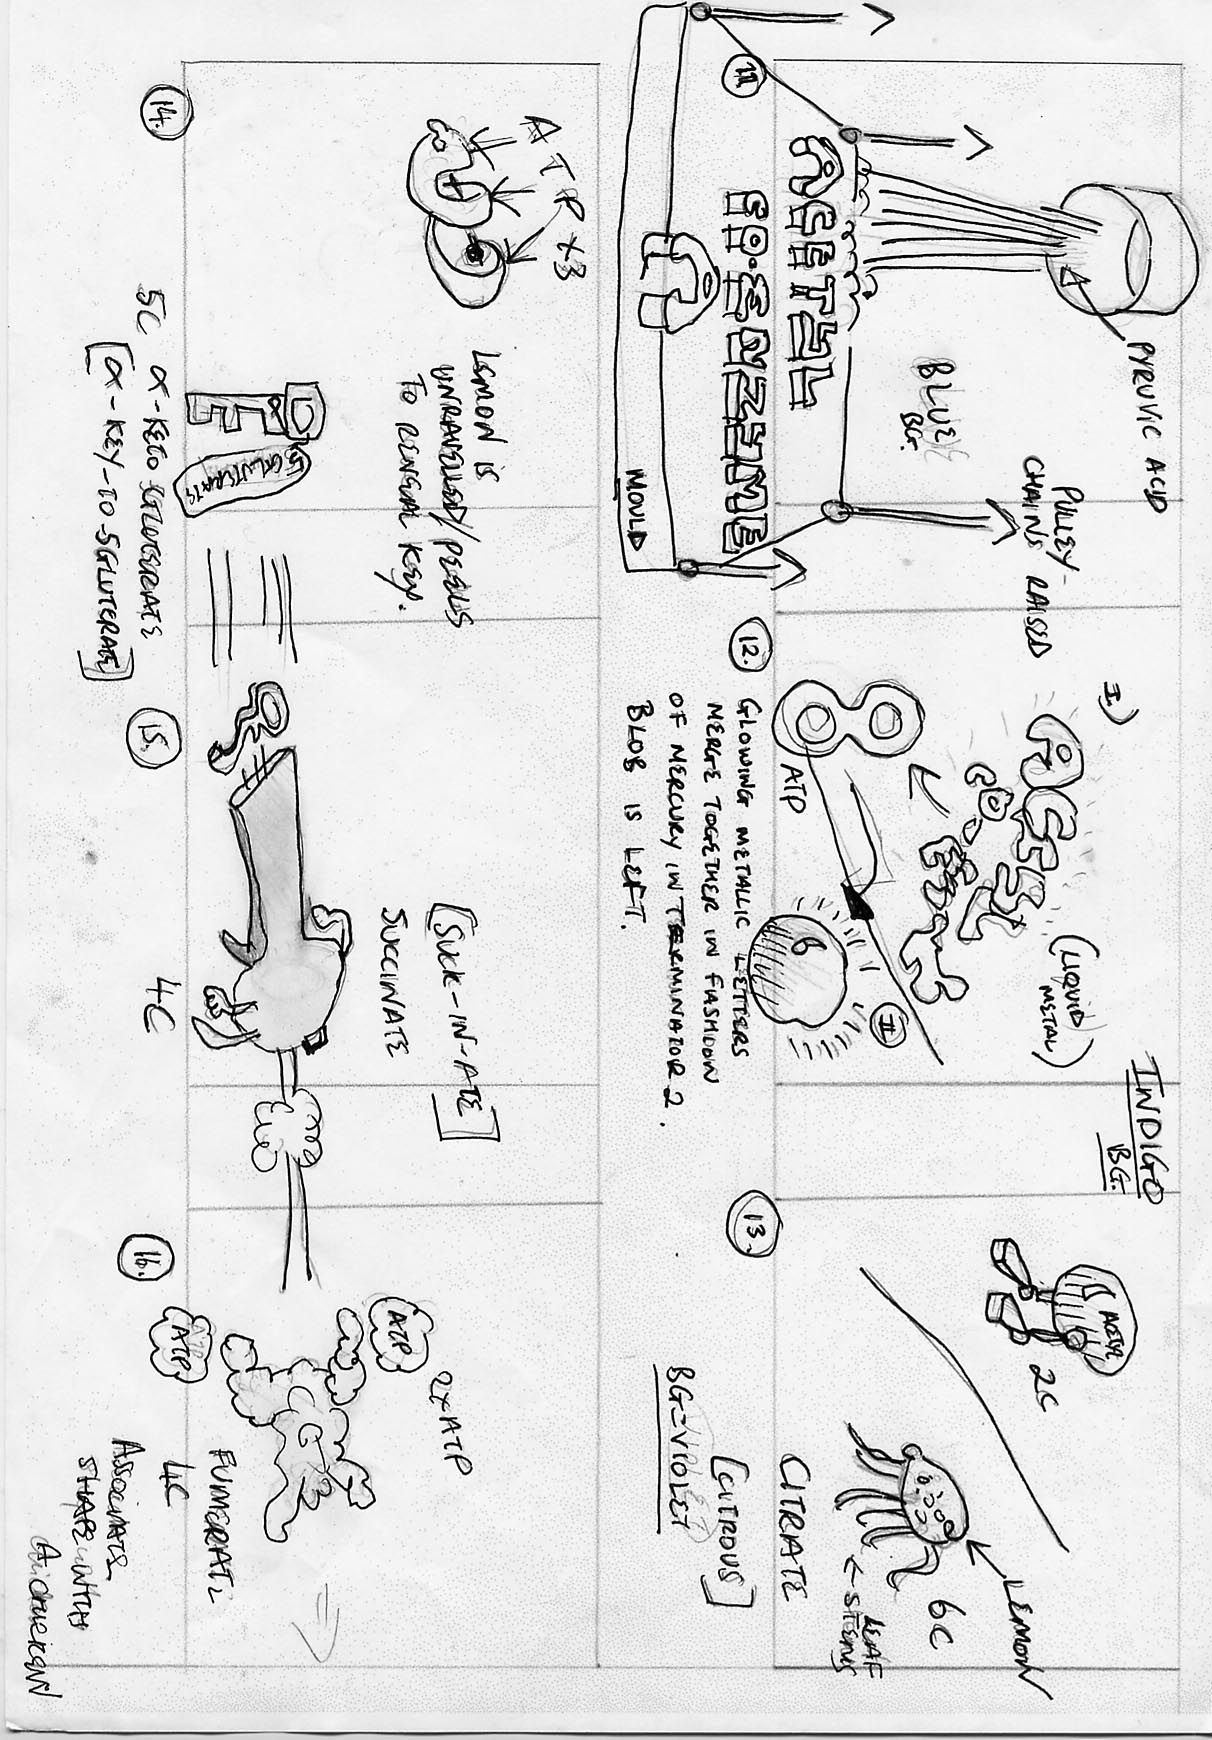 11.
PYRUVIC ACID
BLUE
BG.
PULLEY-
CHAINS RAISED
ACETYL
CO-ENZYME
A
MOULD
12.
I)
ACETYL
(LIQUID
METAL)
INDIGO
BG.
ATP
II
GLOWING METALLIC LETTERS
MERGE TOGETHER IN FASHION
OF MERCURY IN TERMINATOR 2.
BLOB IS LEFT.
13.
ACETYL
2C
LEMON
6C
LEAF
STEMS
CITRIATE
[CITROUS]
BG=VIOLET
14.
ATP x3
LEMON IS
UNRAVELLED/PEELS
TO REVEAL KEY.
5 GLUTERATE
5C α-KETO 5GLUTERATE
[α-KEY-TO-5GLUTERATE]
15.
[SUCK-IN-ATE]
SUCCINATE
4C
16.
ATP
2xATP
ATP
FUMERATE
4C
ASSOCIATE
SHAPE WITH